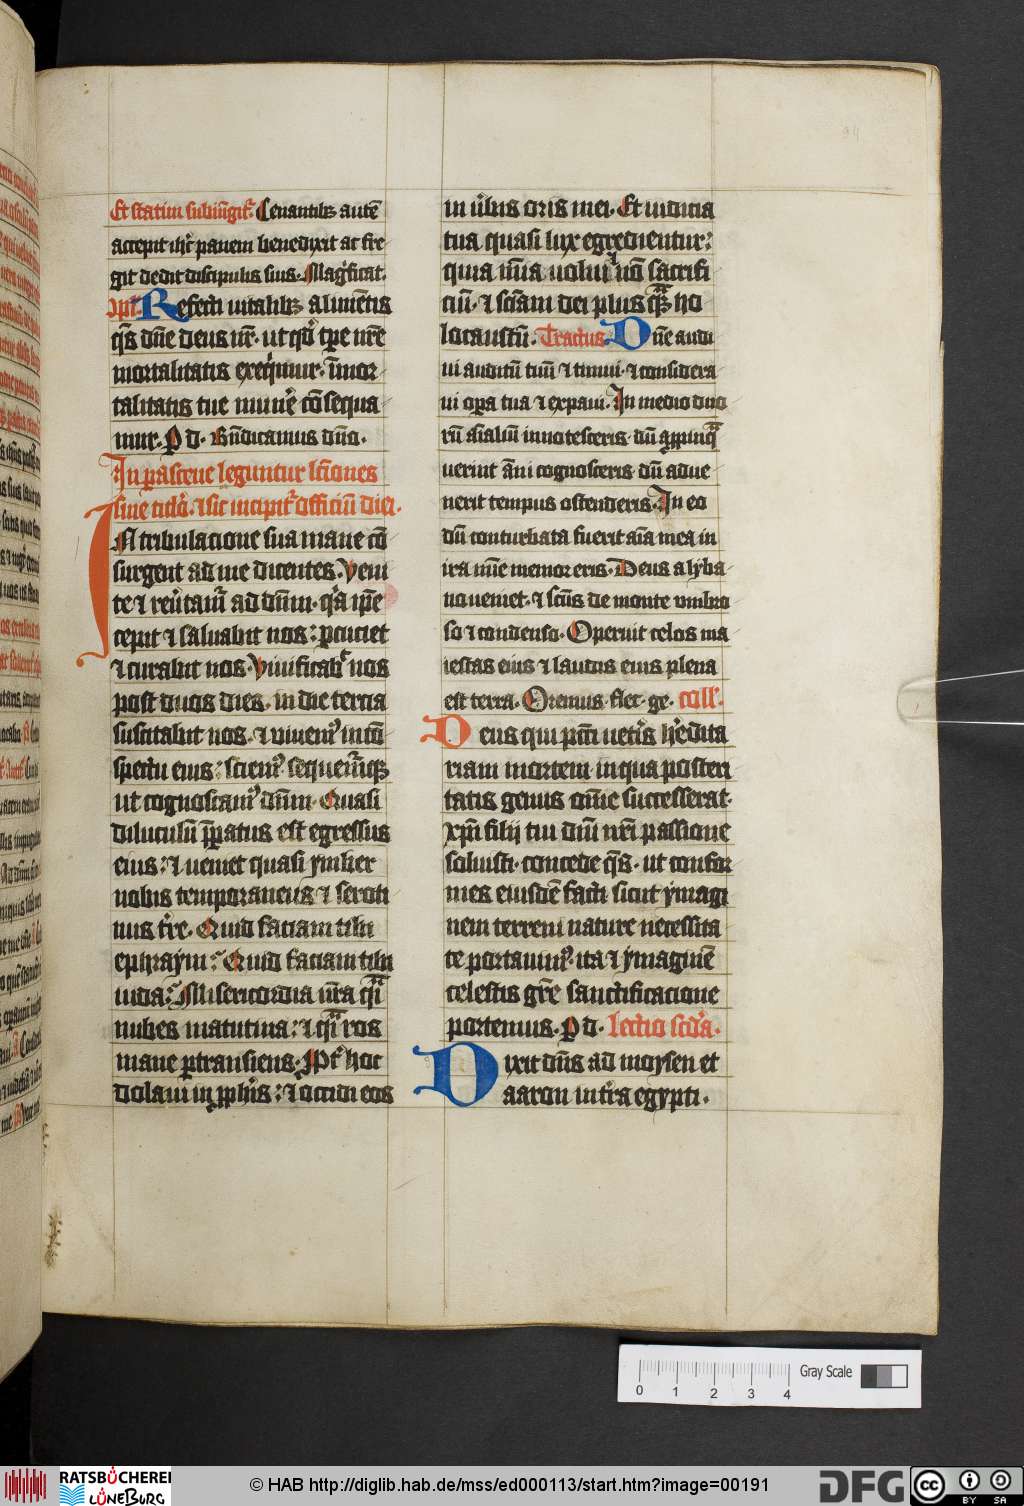 Et statim subiu̅git᷑. Cenantib⁊ aute̅
accepit ih̅c panem benedixit ac fre
git dedit discipulis suis. Mag̅ficat.
Refecti uitalib⁊ alime̅tis
q̅s dn̅e deus nr̅. ut qd̅ tp̅e nr̅e
mortalitatis exeq̅mur. i̅mor
talitatis tue mune̅ co̅sequa
mur. P d. Bn̅dicamus dn̅o.
In parasceue leguntur lc̅iones
siue titlo̅. ⁊ sic incipit᷑ officiu̅ diei.
IN tribulacione sua mane co̅
surgent ad me dicentes. Veni
te ⁊ reu̅tam᷑ ad dn̅m. q̅a ip̅e
cepit ⁊ saluabit nos: p̱cuciet
⁊ curabit nos. Viuificab᷑ nos
post duos dies. in die tercia
suscitabit nos. ⁊ viuem᷒ in co̅
spectu eius: sciem᷒ sequem᷑q⁊
ut cognoscam᷒ dn̅m. Quasi
diluculu̅ p̅paratus est egressus
eius: ⁊ ueniet quasi ymber
nobis temporaneus ⁊ seroti
nus tr̅e. Quid faciam tibi
ephraym: Quid faciam tibi
iuda: Misericordia ur̅a q̅i
nubes matutina: ⁊ q̅i ros
mane p̱transiens. Pt̅ hoc
dolaui in p̅phis: ⁊ occidi eos
in u̅bis oris mei. Et iudicia
tua quasi lux egredientur:
quia mi̅a uolui ⁊ no̅ sacrifi
ciu̅. ⁊ sc̅iam dei plus q̅⁊ ho
locaustu̅. Tractus. Dn̅e audi
ui auditu̅ tuu̅ ⁊ timui. ⁊ considera
ui op̱a tua ⁊ expaui. In medio duo
ru̅ a̅ialiu̅ innotesceris. du̅ app̱inq̅
uerint a̅ni cognosceris. du̅ adue
nerit tempus ostenderis. In eo
du̅ conturbata fuerit a̅ia mea in
ira mi̅e memor eris. Deus a lyba
no ueniet. ⁊ sc̅us de monte vmbro
so ⁊ condenso. Operuit celos ma
iestas eius ⁊ laudis eius plena
est terra. Oremus. flect. ge. coll̅.
Deus qui pc̅ti uet̅is he̅dita
riam mortem in qua posteri
tatis genus om̅e successerat.
xp̅i filij tui dn̅i nr̅i passione
soluisti. concede q̅s. ut confor
mes eiusde̅ facti sicut ymagi
nem terreni nature necessita
te portauim᷒. ita ⁊ ymagine̅
celestis gr̅e sanctificacione
portemus. P d. Lectio scd̅a.
Dixit dn̅s ad moysen et
aaron in tr̅a egypti.
0 1 2 3 4 Gray Scale
RATSBÜCHEREI
LÜNEBURG
© HAB http://diglib.hab.de/mss/ed000113/start.htm?image=00191
DFG
cc BY SA